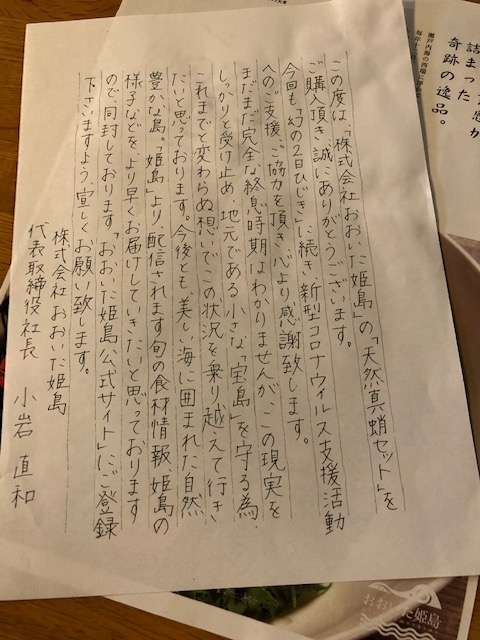 この度は、「株式会社おおいた姫島」の「天然真蛸セット」を
ご購入頂き、誠にありがとうございます。
今回も、「幻の2日ひじき」に続き新型コロナウイルス支援活動
へのご支援、ご協力を頂き心より、感謝致します。
まだまだ完全な終息時期はわかりませんが、この現実を
しっかりと受け止め、地元である小さな「宝島」を守る為、
これまでと変わらぬ想いでこの状況を乗り越えて行き
たいと思っております。今後とも、美しい海に囲まれた自然
豊かな島。「姫島」より、配信されます旬の食材情報、姫島の
様子などをより早くお届けしていきたいと思っております
ので、同封しております「おおいた姫島公式サイト」にご登録
下さいますよう、宜しくお願い致します。
株式会社おおいた姫島
代表取締役社長 小岩直和
詰まった
奇跡の逸品。
瀬戸内海の西端に
おおいた姫島